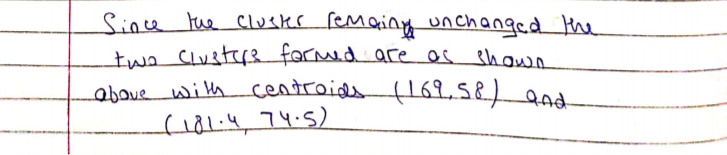 Since the cluster remains unchanged the
two clusters formed are as shown
above with centroids (169,58) and
(181.4, 74.5)